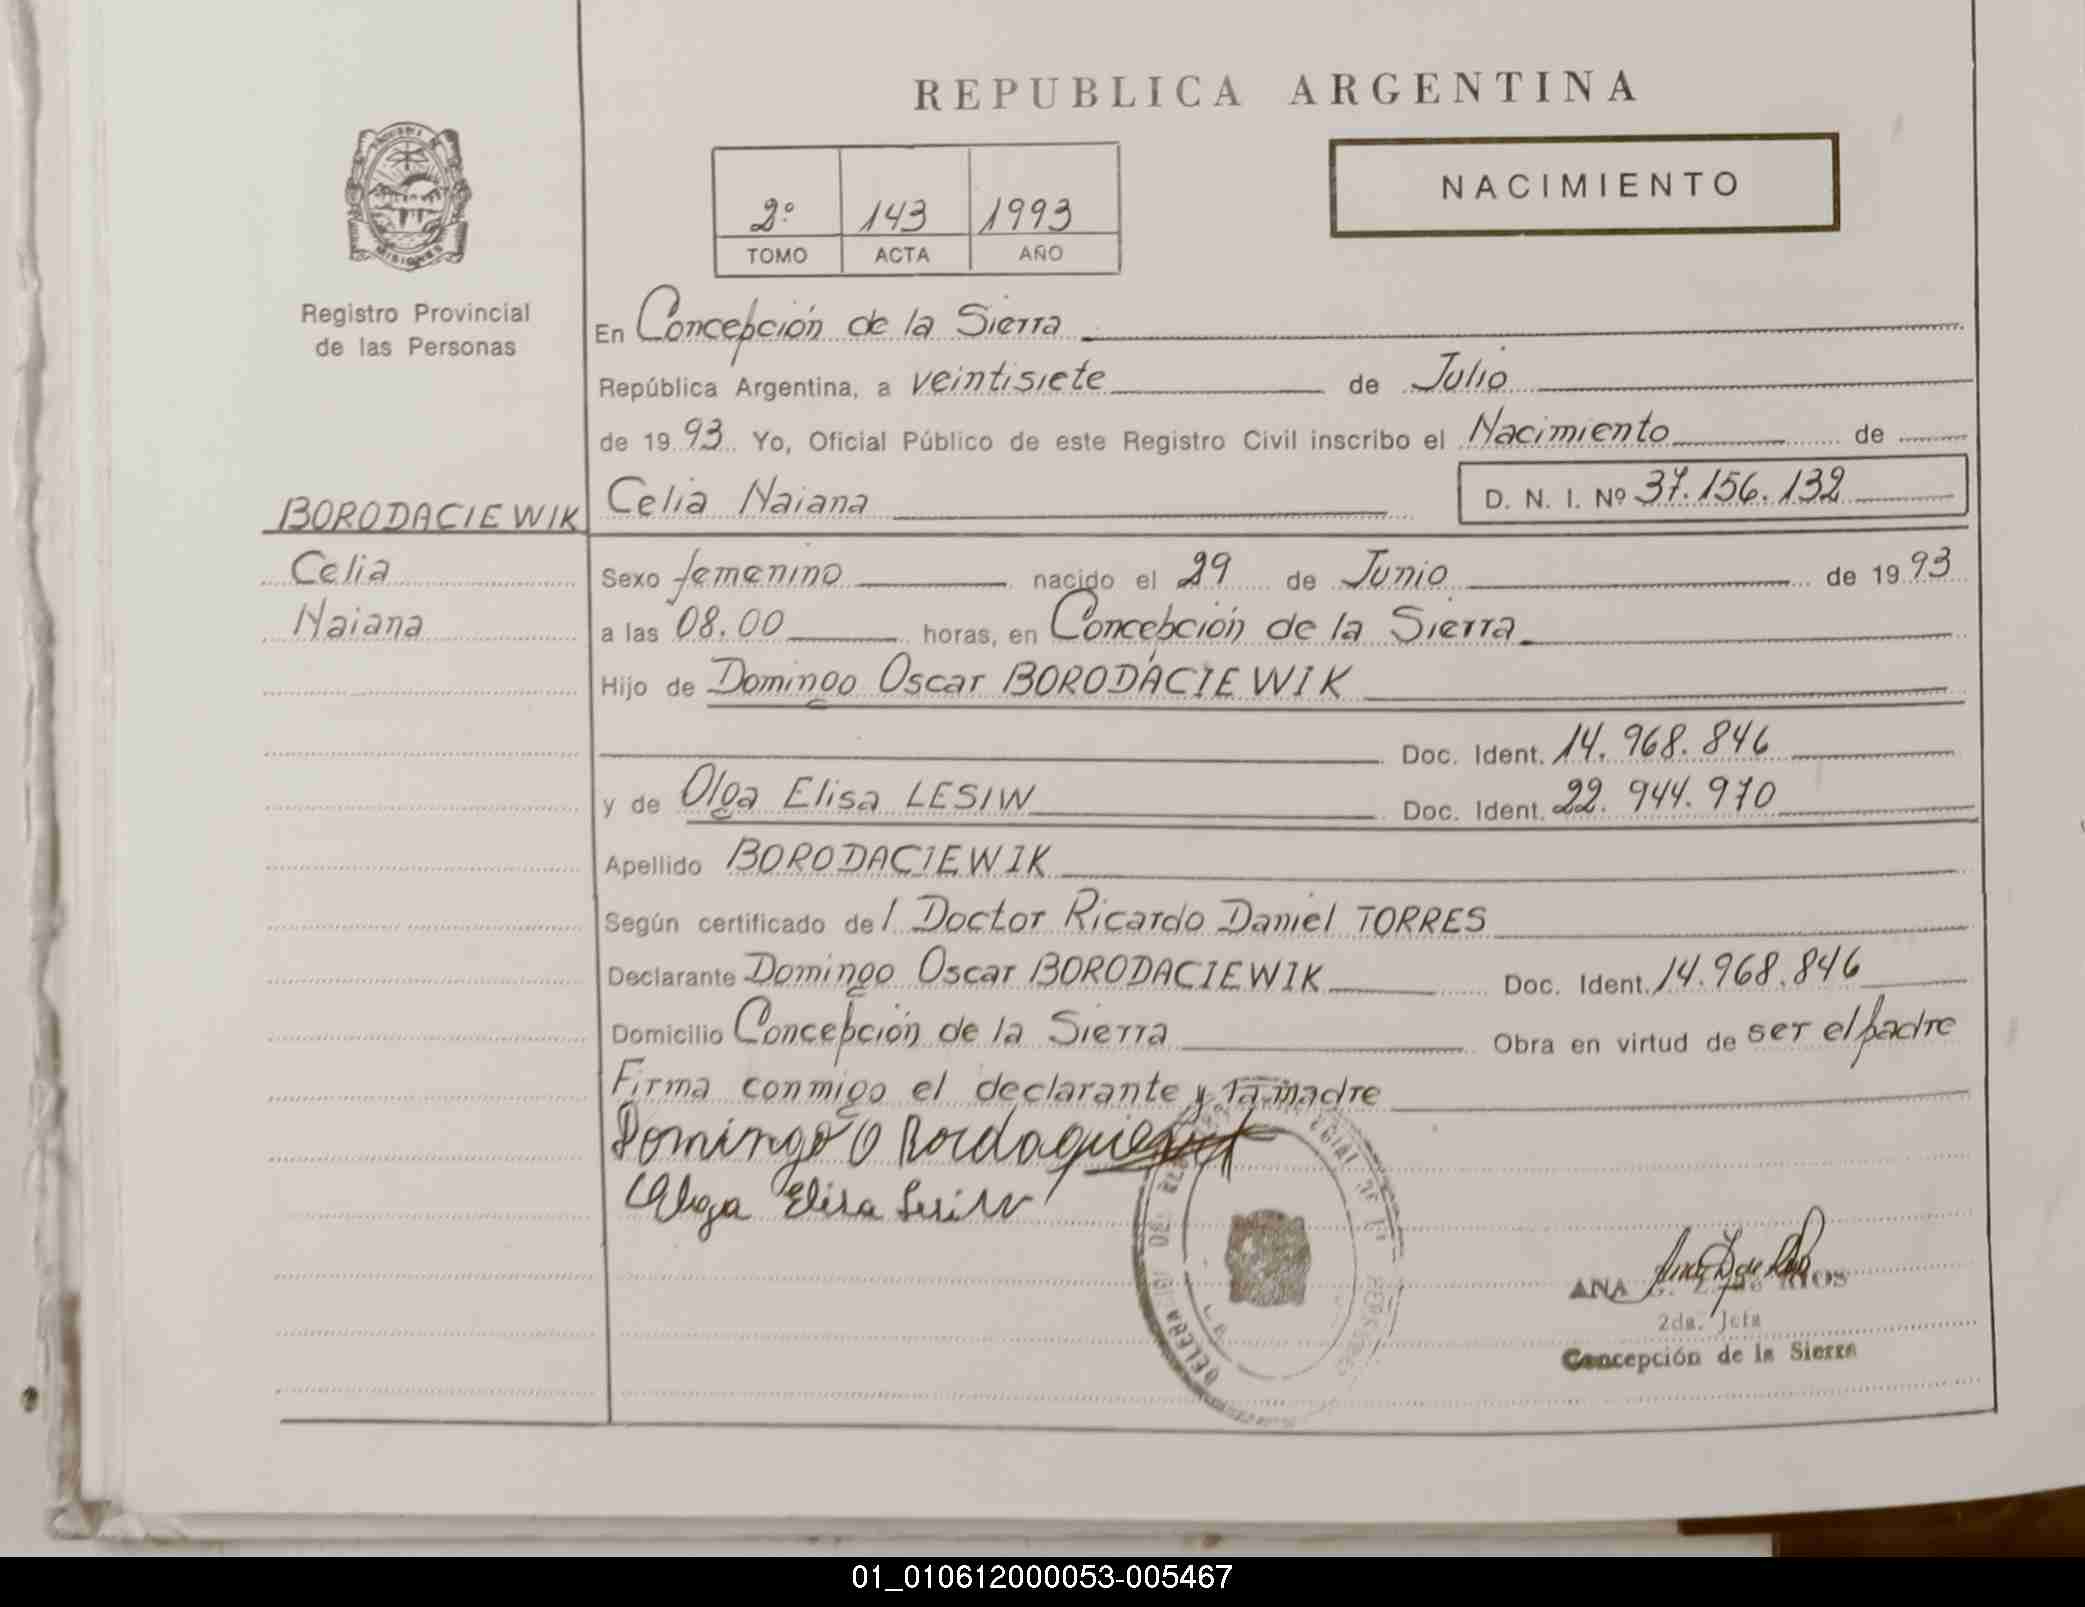 REPUBLICA ARGENTINA
NACIMIENTO
2º 143 1993
TOMO ACTA AÑO
MISIONES
Registro Provincial
de las Personas
En Concepción de la Sierra
República Argentina, a veintisiete de Julio
de 1993 Yo, Oficial Público de este Registro Civil inscribo el Nacimiento de
BORODACIEWIK Celia Naiana D. N. I. Nº 37.156.132
Celia
Naiana
Sexo femenino nacido el 29 de Junio de 1993
a las 08.00 horas, en Concepción de la Sierra
Hijo de Domingo Oscar BORODACIEWIK
Doc. Ident. 14.968.846
y de Olga Elisa LESIW Doc. Ident. 22.944.970
Apellido BORODACIEWIK
Según certificado del Doctor Ricardo Daniel TORRES
Declarante Domingo Oscar BORODACIEWIK Doc. Ident. 14.968.846
Domicilio Concepción de la Sierra Obra en virtud de ser el padre
Firma conmigo el declarante y la madre
Domingo O
Olga Elisa Lesiw
ANA RIOS
2da. Jefa
Concepción de la Sierra
01_010612000053-005467